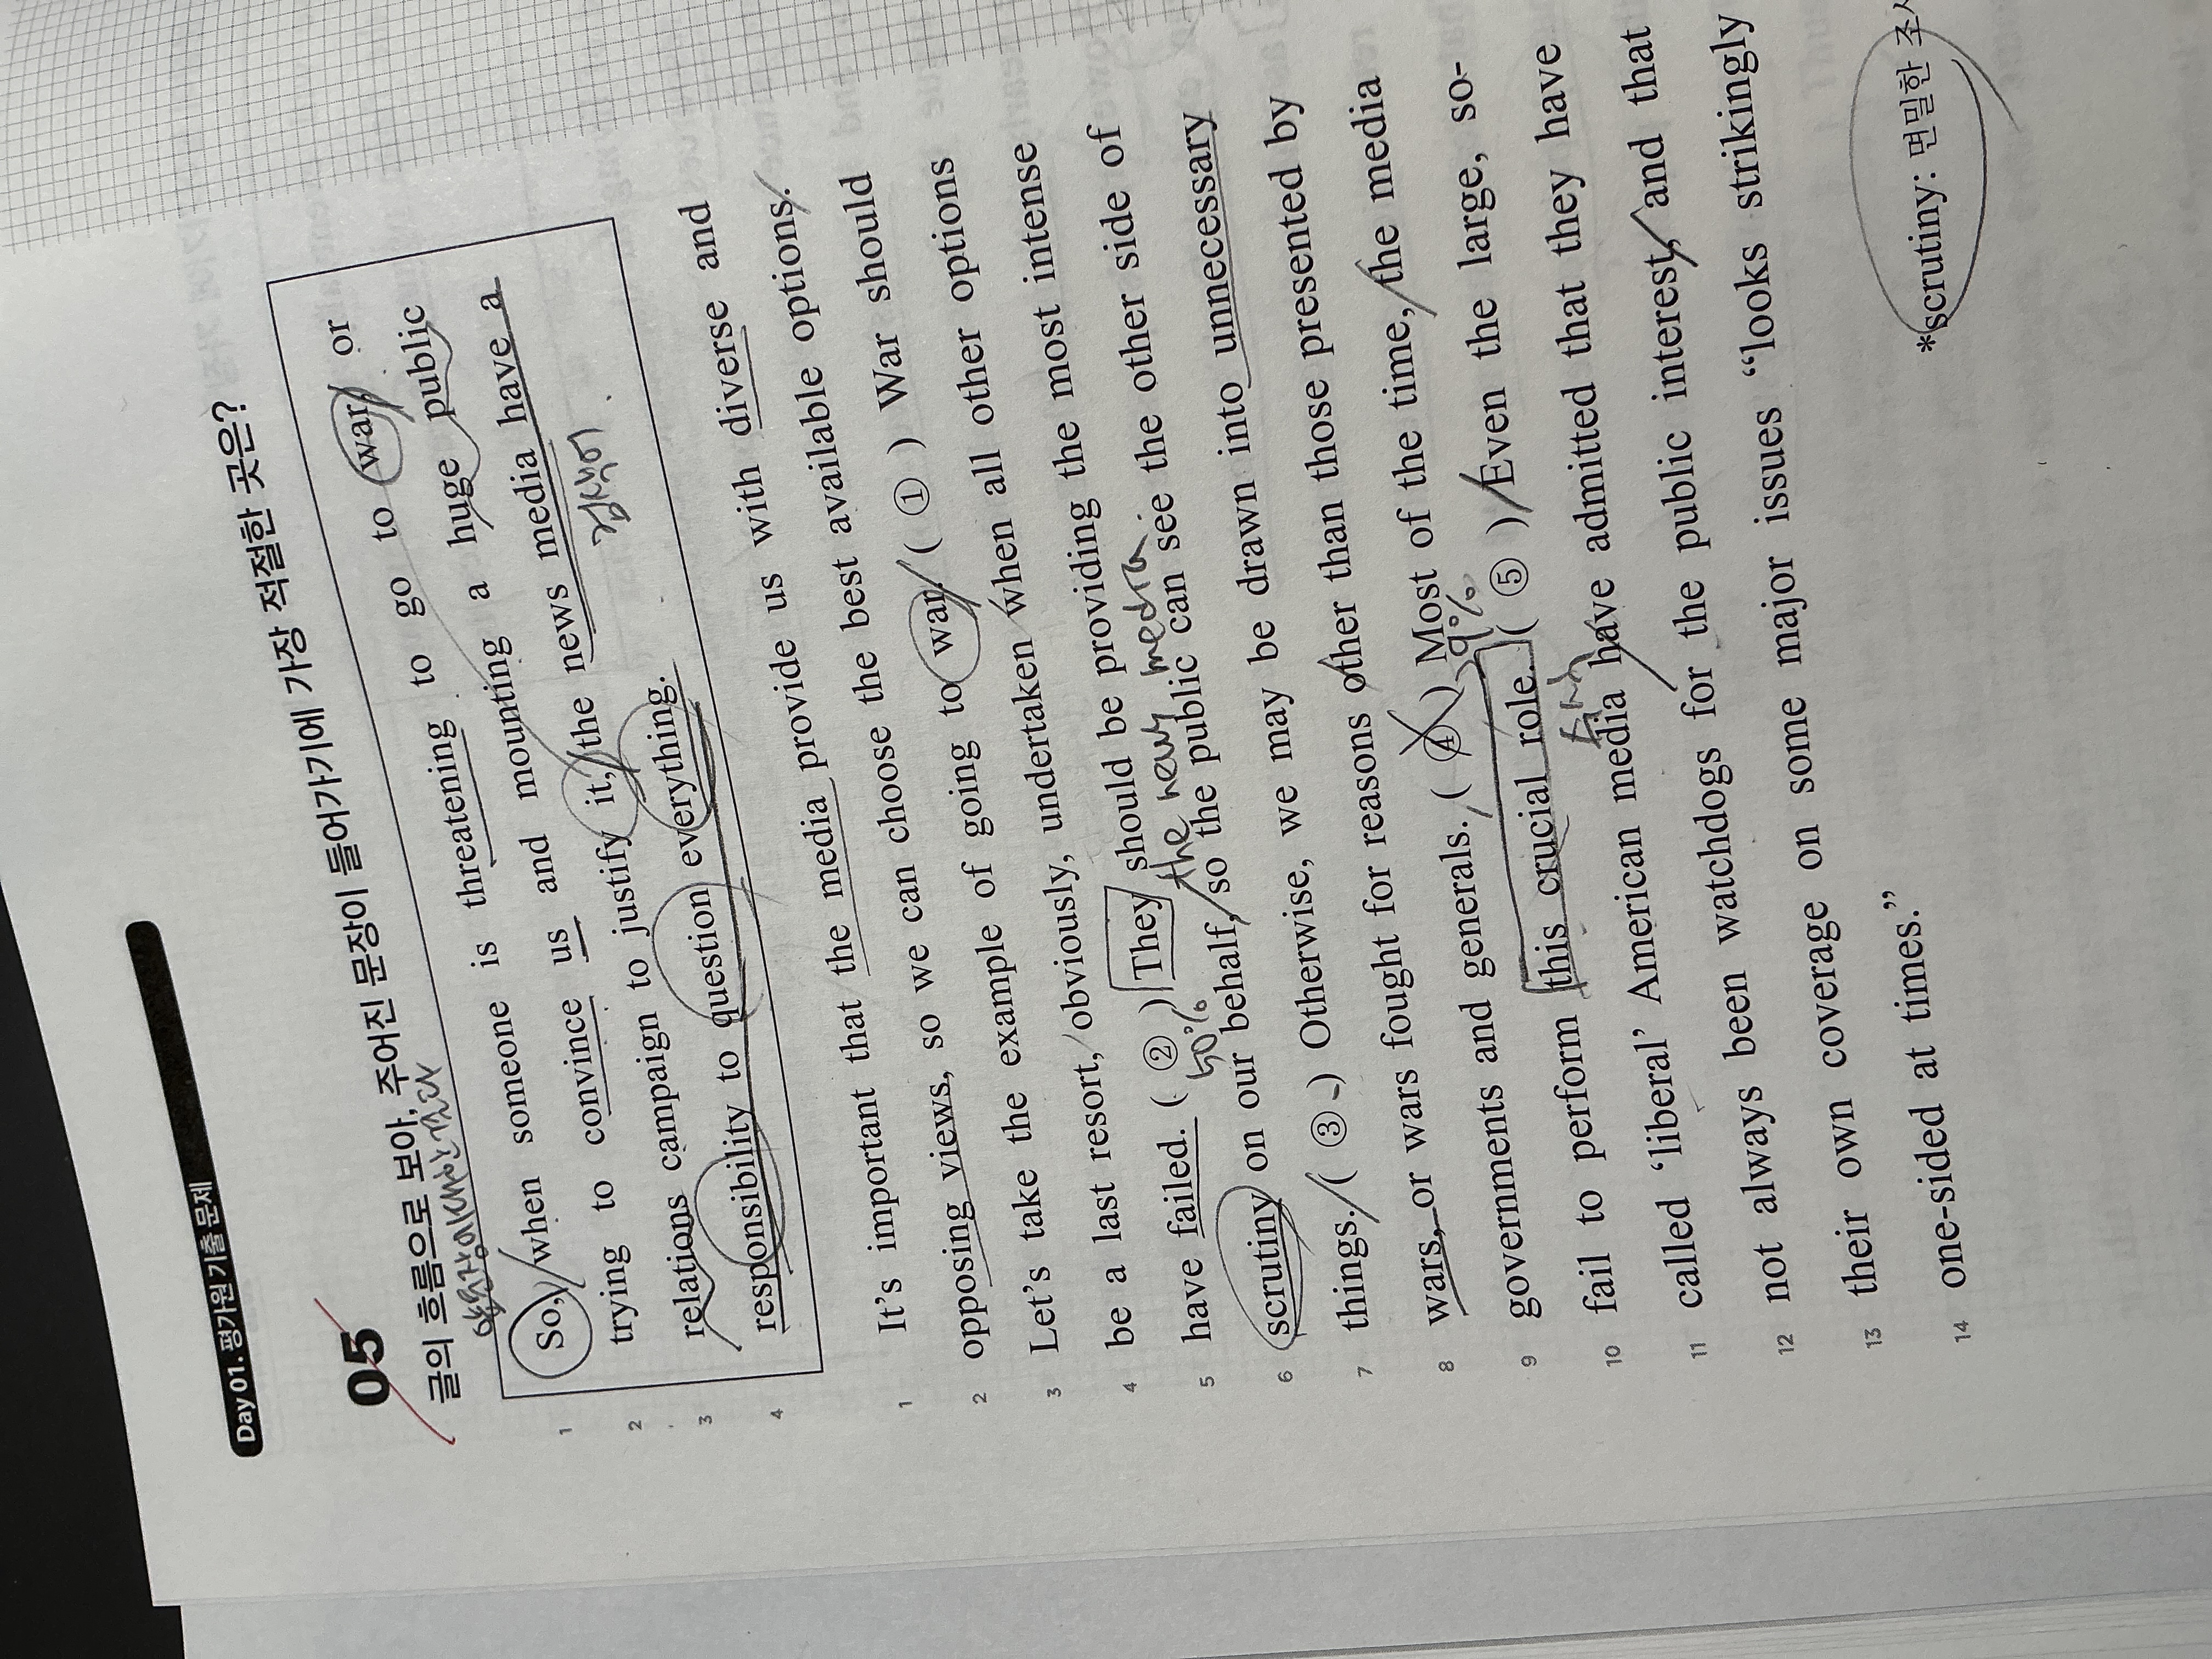 Day 01. 평가원 기출 문제
05
글의 흐름으로 보아, 주어진 문장이 들어가기에 가장 적절한 곳은?
1 So, when someone is threatening to go to war, or
2 trying to convince us and mounting a huge public
3 relations campaign to justify it, the news media have a
4 responsibility to question everything.
1 It's important that the media provide us with diverse and
2 opposing views, so we can choose the best available options.
3 Let's take the example of going to war. ( ① ) War should
4 be a last resort, obviously, undertaken when all other options
5 have failed. ( ② ) They should be providing the most intense
50% the news media
6 scrutiny on our behalf, so the public can see the other side of
7 things. ( ③ ) Otherwise, we may be drawn into unnecessary
8 wars, or wars fought for reasons other than those presented by
9 governments and generals. ( ④ ) Most of the time, the media
9%
10 fail to perform this crucial role. ( ⑤ ) Even the large, so-
11 called 'liberal' American media have admitted that they have
12 not always been watchdogs for the public interest, and that
13 their own coverage on some major issues "looks strikingly
14 one-sided at times."
*scrutiny: 면밀한 조사